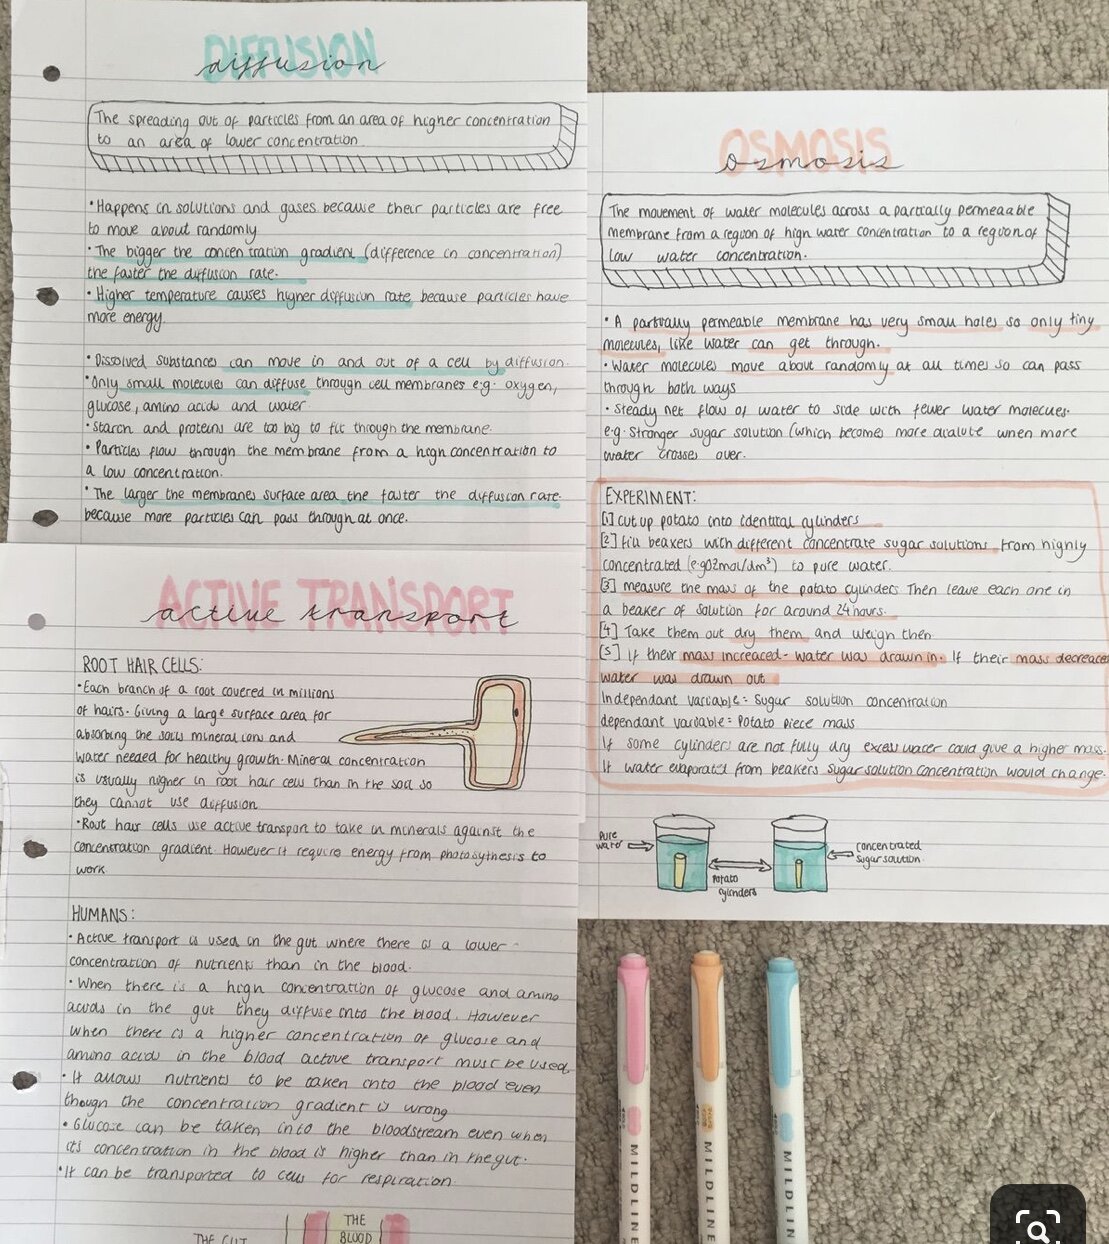 DIFFUSION
diffusion
The spreading out of particles from an area of higher concentration
to an area of lower concentration
• Happens in solutions and gases because their particles are free
to move about randomly
• The bigger the concentration gradient (difference in concentration)
the faster the diffusion rate.
• Higher temperature causes higher diffusion rate because particles have
more energy.
• Dissolved substances can move in and out of a cell by diffusion.
• Only small molecules can diffuse through cell membranes e.g. oxygen,
glucose, amino acids and water.
• Starch and proteins are too big to fit through the membrane.
• Particles flow through the membrane from a high concentration to
a low concentration.
• The larger the membranes surface area the faster the diffusion rate.
because more particles can pass through at once.
ACTIVE TRANSPORT
active transport
ROOT HAIR CELLS:
• Each branch of a root covered in millions
of hairs. Giving a large surface area for
absorbing the soils mineral ions and
water needed for healthy growth. Mineral concentration
is usually higher in root hair cells than in the soil so
they cannot use diffusion
• Root hair cells use active transport to take in minerals against the
concentration gradient. However it requires energy from photosythesis to
work.
HUMANS:
• Active transport is used in the gut where there is a lower
concentration of nutrients than in the blood.
• When there is a high concentration of glucose and amino
acids in the gut they diffuse into the blood. However
when there is a higher concentration of glucose and
amino acids in the blood active transport must be used.
• It allows nutrients to be taken into the blood even
though the concentration gradient is wrong
• Glucose can be taken into the bloodstream even when
its concentration in the blood is higher than in the gut.
• It can be transported to cells for respiration.
THE GUT
THE
BLOOD
OSMOSIS
osmosis
The movement of water molecules across a partially permeable
membrane from a region of high water concentration to a region of
low water concentration.
• A partially permeable membrane has very small holes so only tiny
molecules, like water can get through.
• Water molecules move about randomly at all times so can pass
through both ways
• Steady net flow of water to side with fewer water molecules.
e.g. Stronger sugar solution (which becomes more dilute when more
water crosses over.
EXPERIMENT:
[1] Cut up potato into identical cylinders
[2] Fill beakers with different concentrate sugar solutions from highly
concentrated (e.g 0.2mol/dm³) to pure water.
[3] measure the mass of the potato cylinders Then leave each one in
a beaker of solution for around 24 hours.
[4] Take them out dry them and weigh then
[5] If their mass increaced - water was drawn in. If their mass decreaces
water was drawn out
Independant variable = Sugar solution concentration
dependant variable = Potato piece mass
If some cylinders are not fully dry excess water could give a higher mass.
If water evaporated from beakers sugar solution concentration would change.
Pure
water
Potato
cylinders
concentrated
sugar solution.
MILDLINE
MILDLINE
MILDLIN